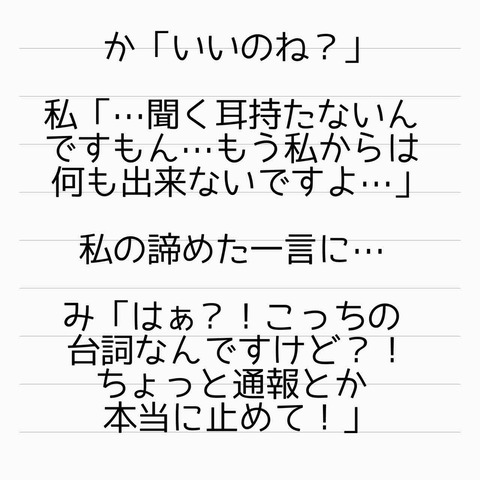 か「いいのね？」
私「…聞く耳持たないん
ですもん…もう私からは
何も出来ないですよ…」
私の諦めた一言に…
み「はぁ？！こっちの
台詞なんですけど？！
ちょっと通報とか
本当に止めて！」